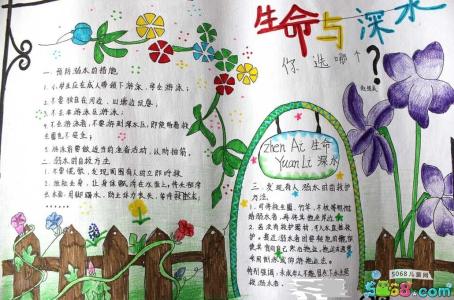 生命与深水
你选哪个?
一、预防溺水的措施
1、小学生应在成人带领下游泳、学游泳;
2、不要独自在河边、山塘边玩耍;
3、不去非游泳区游泳;
4、不会游泳者,不要游到深水区,即使带着救
生圈也不安全;
5、游泳前要做适当的准备活动,以防抽筋。
二、溺水的自救方法
1、不要慌张,发现周围有人时立即呼救;
2、放松全身,让身体飘浮在水面上,将头部浮
出水面,用脚踢水,防止体力丧失,等待救援;
zhen Ai 生命
Yuan Li 深水
三、发现有人溺水时的救护
方法
1、可将救生圈、竹竿、木板等物抛给
溺水者,再将其拖至岸边;
2、若没有救护器材,可入水直接救
护。接近溺水者时
特别强调:未成年人
5068儿童网
5068.com